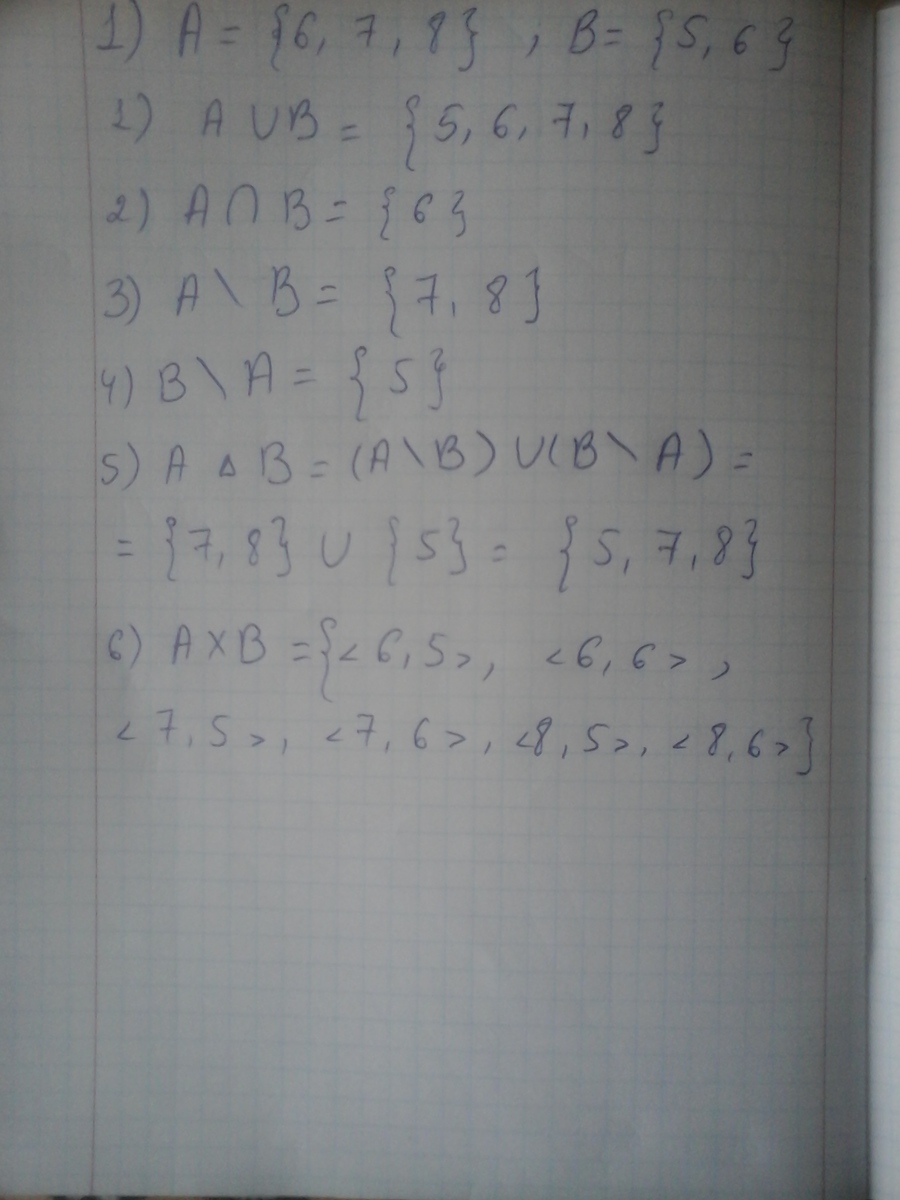 1) A = {6, 7, 8} , B = {5, 6}
1) A ∪ B = {5, 6, 7, 8}
2) A ∩ B = {6}
3) A \ B = {7, 8}
4) B \ A = {5}
5) A △ B = (A \ B) ∪ (B \ A) =
= {7, 8} ∪ {5} = {5, 7, 8}
6) A X B = {<6, 5>, <6, 6>,
<7, 5>, <7, 6>, <8, 5>, <8, 6>}